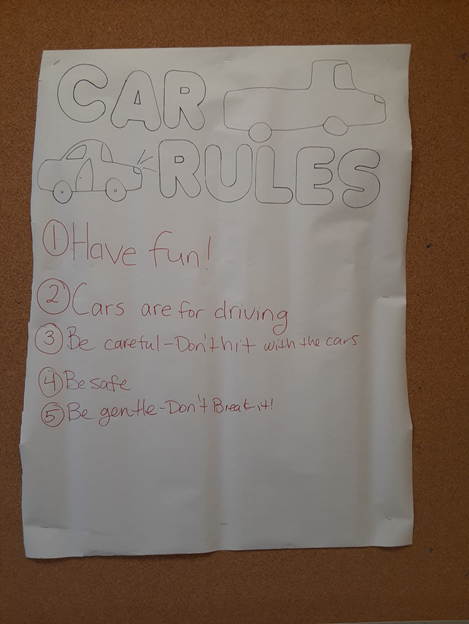 CAR
RULES
1 Have fun!
2 Cars are for driving
3 Be careful-Don't hit with the cars
4 Be safe
5 Be gentle-Don't Break it!